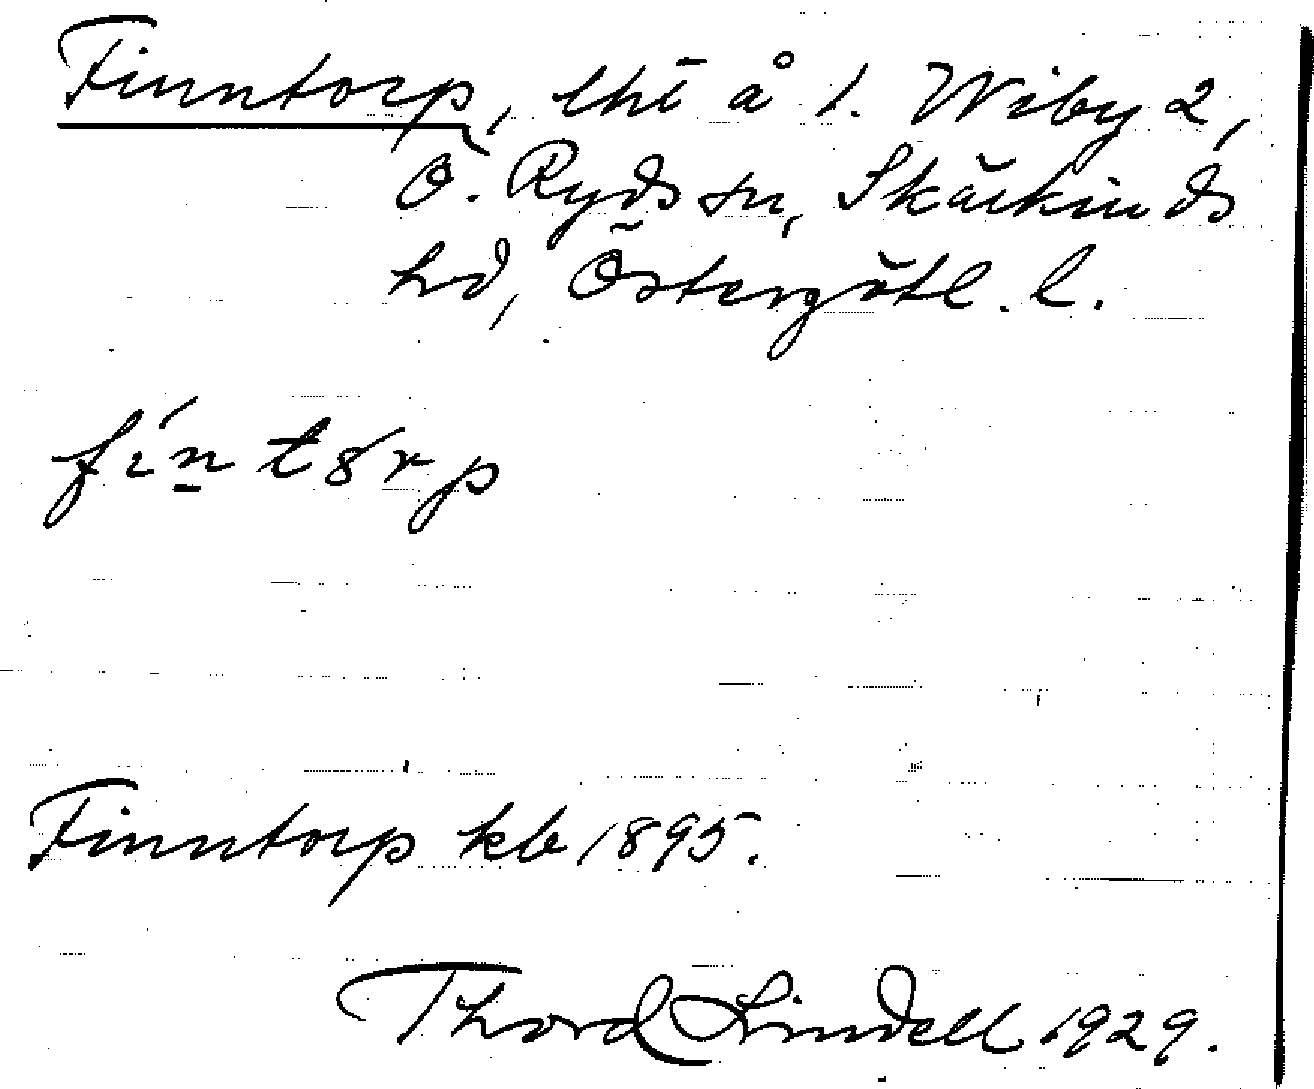 Finntorp, lht å 1. Wiby 2,
Ö. Ryds sn, Skärkinds
hd, Östergötl. l.
Finntorp kb 1895.
Thord Lindell 1929.